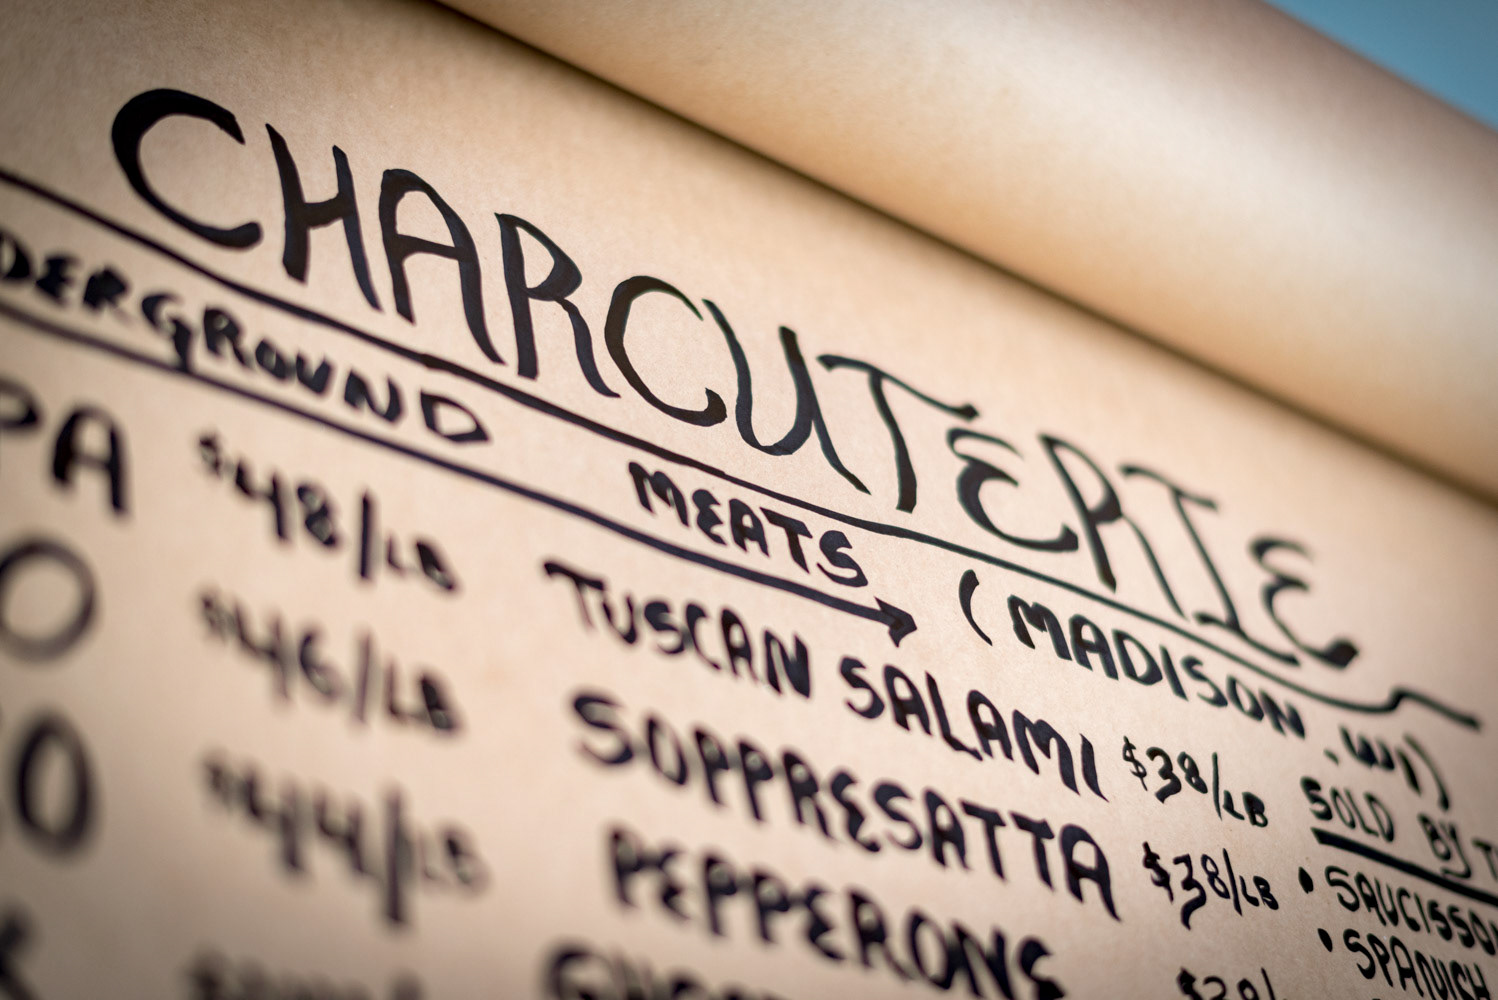 CHARCUTERIE
DERGROUND MEATS (MADISON, WI)
PA $48/LB
TUSCAN SALAMI $38/LB
SOLD BY T
O $46/LB
SOPPRESATTA $38/LB
• SAUCISSO
O $44/LB
PEPPERONE
• SPANICH